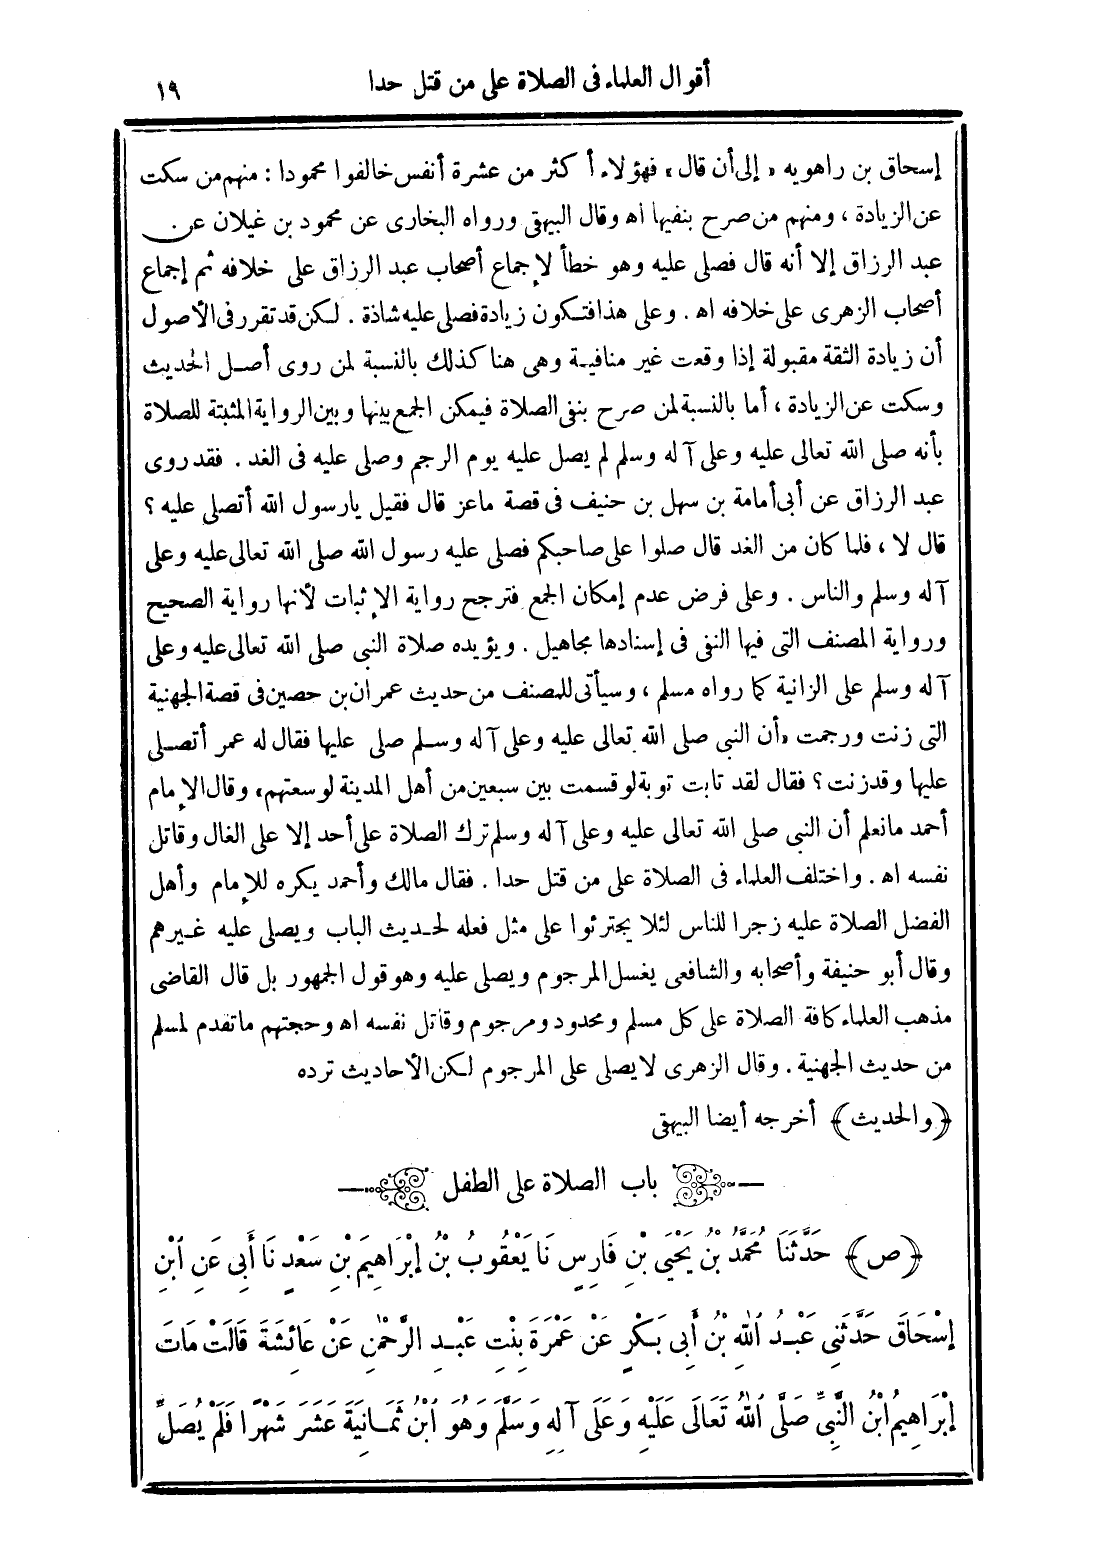 أقوال العلماء فى الصلاة على من قتل حدا ١٩
إسحاق بن راهويه «إلى أن قال» فهؤلاء أكثر من عشرة أنفس خالفوا محمودا : منهم من سكت
عن الزيادة ، ومنهم من صرح بنفيها اه وقال البيهقى ورواه البخارى عن محمود بن غيلان عن
عبد الرزاق إلا أنه قال فصلى عليه وهو خطأ لإجماع أصحاب عبد الرزاق على خلافه ثم إجماع
أصحاب الزهرى على خلافه اه . وعلى هذا فتكون زيادة فصلى عليه شاذة . لكن قد تقرر فى الأصول
أن زيادة الثقة مقبولة إذا وقعت غير منافية وهى هنا كذلك بالنسبة لمن روى أصل الحديث
وسكت عن الزيادة ، أما بالنسبة لمن صرح بنفى الصلاة فيمكن الجمع بينها وبين الرواية المثبتة للصلاة
بأنه صلى الله تعالى عليه وعلى آله وسلم لم يصل عليه يوم الرجم وصلى عليه فى الغد . فقد روى
عبد الرزاق عن أبى أمامة بن سهل بن حنيف فى قصة ماعز قال فقيل يارسول الله أتصلى عليه ؟
قال لا ، فلما كان من الغد قال صلوا على صاحبكم فصلى عليه رسول الله صلى الله تعالى عليه وعلى
آله وسلم والناس . وعلى فرض عدم إمكان الجمع فترجح رواية الإثبات لأنها رواية الصحيح
ورواية المصنف التى فيها النفى فى إسنادها مجاهيل . ويؤيده صلاة النبى صلى الله تعالى عليه وعلى
آله وسلم على الزانية كما رواه مسلم ، وسيأتى للمصنف من حديث عمران بن حصين فى قصة الجهنية
التى زنت ورجمت «أن النبى صلى الله تعالى عليه وعلى آله وسلم صلى عليها فقال له عمر أتصلى
عليها وقد زنت ؟ فقال لقد تابت توبة لو قسمت بين سبعين من أهل المدينة لوسعتهم» وقال الإمام
أحمد مانعلم أن النبى صلى الله تعالى عليه وعلى آله وسلم ترك الصلاة على أحد إلا على الغال وقاتل
نفسه اه . واختلف العلماء فى الصلاة على من قتل حدا . فقال مالك وأحمد يكره للإمام وأهل
الفضل الصلاة عليه زجرا للناس لئلا يجترئوا على مثل فعله لحديث الباب ويصلى عليه غيرهم
وقال أبو حنيفة وأصحابه والشافعى يغسل المرجوم ويصلى عليه وهو قول الجمهور بل قال القاضى
مذهب العلماء كافة الصلاة على كل مسلم ومحدود ومرجوم وقاتل نفسه اه وحجتهم ماتقدم لمسلم
من حديث الجهنية . وقال الزهرى لايصلى على المرجوم لكن الأحاديث ترده
﴿والحديث﴾ أخرجه أيضا البيهقى
باب الصلاة على الطفل
﴿ص﴾ حَدَّثَنَا مُحَمَّدُ بْنُ يَحْيَى بْنِ فَارِسٍ نَا يَعْقُوبُ بْنُ إِبْرَاهِيمَ بْنِ سَعْدٍ نَا أَبِى عَنِ ابْنِ
إِسْحَاقَ حَدَّثَنِى عَبْدُ اللهِ بْنُ أَبِى بَكْرٍ عَنْ عَمْرَةَ بِنْتِ عَبْدِ الرَّحْمٰنِ عَنْ عَائِشَةَ قَالَتْ مَاتَ
إِبْرَاهِيمُ ابْنُ النَّبِىِّ صَلَّى اللهُ تَعَالَى عَلَيْهِ وَعَلَى آلِهِ وَسَلَّمَ وَهُوَ ابْنُ ثَمَانِيَةَ عَشَرَ شَهْرًا فَلَمْ يُصَلِّ